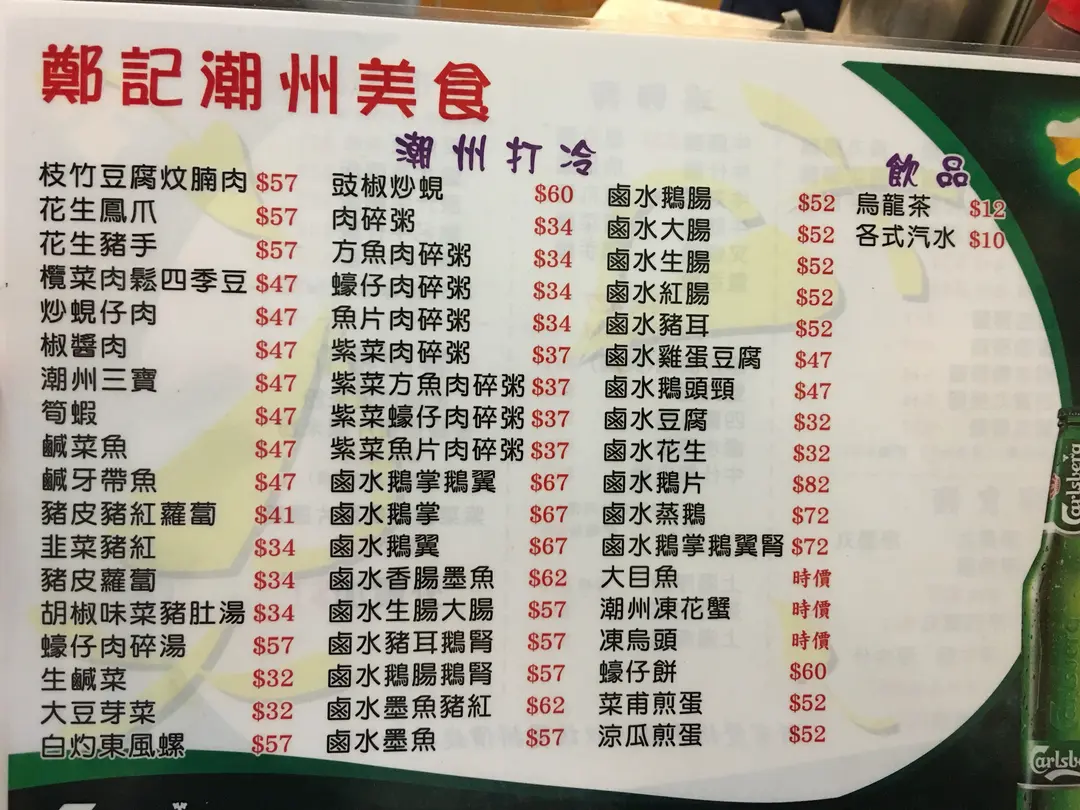 鄭記潮州美食
潮州打冷
枝竹豆腐炆腩肉 $57
花生鳳爪 $57
花生豬手 $57
欖菜肉鬆四季豆 $47
炒蜆仔肉 $47
椒醬肉 $47
潮州三寶 $47
筍蝦 $47
鹹菜魚 $47
鹹牙帶魚 $47
豬皮豬紅蘿蔔 $41
韭菜豬紅 $34
豬皮蘿蔔 $34
胡椒味菜豬肚湯 $34
蠔仔肉碎湯 $57
生鹹菜 $32
大豆芽菜 $32
白灼東風螺 $57
豉椒炒蜆 $60
肉碎粥 $34
方魚肉碎粥 $34
蠔仔肉碎粥 $34
魚片肉碎粥 $34
紫菜肉碎粥 $37
紫菜方魚肉碎粥 $37
紫菜蠔仔肉碎粥 $37
紫菜魚片肉碎粥 $37
鹵水鵝掌鵝翼 $67
鹵水鵝掌 $67
鹵水鵝翼 $67
鹵水香腸墨魚 $62
鹵水生腸大腸 $57
鹵水豬耳鵝腎 $57
鹵水鵝腸鵝腎 $57
鹵水墨魚豬紅 $62
鹵水墨魚 $57
鹵水鵝腸 $52
鹵水大腸 $52
鹵水生腸 $52
鹵水紅腸 $52
鹵水豬耳 $52
鹵水雞蛋豆腐 $47
鹵水鵝頭頸 $47
鹵水豆腐 $32
鹵水花生 $32
鹵水鵝片 $82
鹵水蒸鵝 $72
鹵水鵝掌鵝翼腎 $72
大目魚 時價
潮州凍花蟹 時價
凍烏頭 時價
蠔仔餅 $60
菜甫煎蛋 $52
涼瓜煎蛋 $52
飲品
烏龍茶 $12
各式汽水 $10
Carlsberg